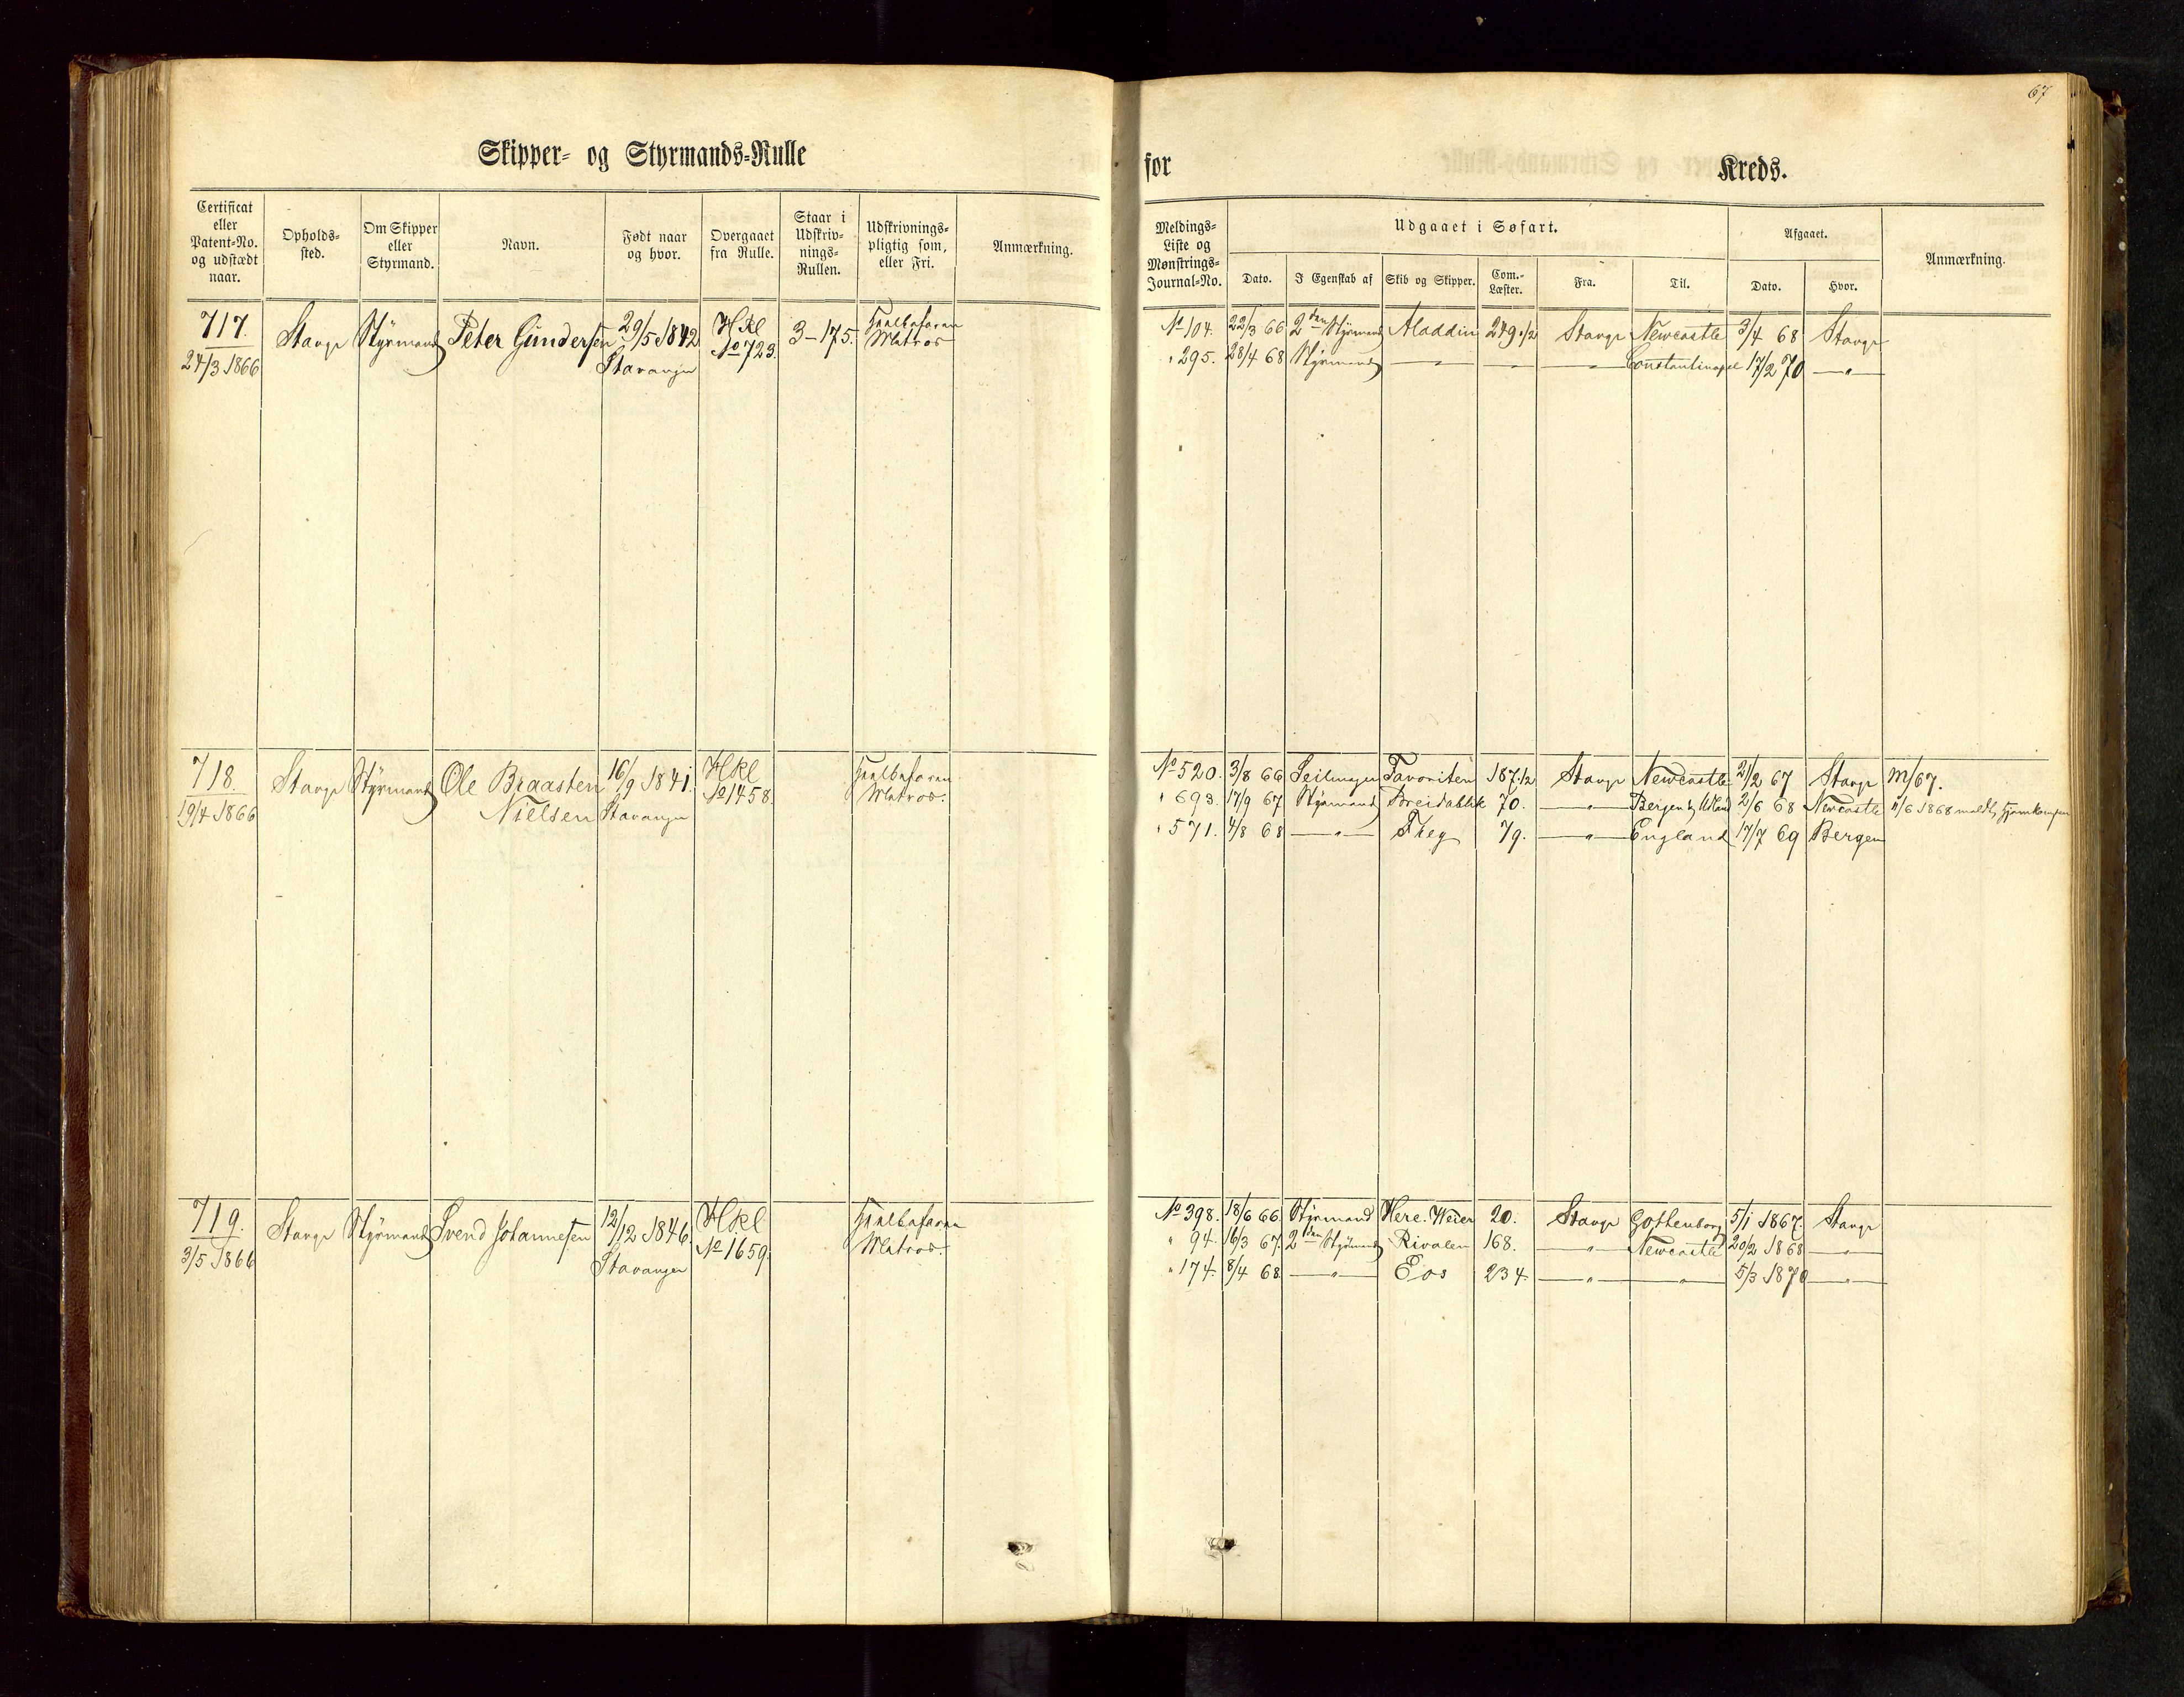 67
Skipper- og Styrmands-Rulle
for Kreds.
Certificat eller Patent-No. og udstædt naar.
Opholds-sted.
Om Skipper eller Styrmand.
Navn.
Født naar og hvor.
Overgaaet fra Rulle.
Staar i Udskriv-nings-Rullen.
Udskrivnings-pligtig som, eller Fri.
Anmærkning.
Meldings-Liste og Mønstrings-Journal-No.
Udgaaet i Søfart.
Dato.
I Egenskab af
Skib og Skipper.
Com.-Læster.
Fra.
Til.
Afgaaet.
Dato.
Hvor.
Anmærkning.
717. Stavgr Styrmand Peter Gundersen 29/5 1842 HKl 3-175. Matros
24/3 1866 Stavanger No 723.
No 104. 22/3 66 2den Styrmand Aladdin 249 1/2 Stavgr Newcastle 3/4 68 Stavgr
" 295. 28/4 68 Styrmand —"— — —"— Constantinopel 17/2 70 —"—
718. Stavgr Styrmand Ole Braasten 16/9 1841. HKl
19/4 1866 Nielsen Stavanger No 1458. Matros.
No 520. 3/8 66 Favoriten 187 1/2 Stavgr Newcastle 21/2 67 Stavgr M/67.
" 693. 17/9 67 Styrmand Breidablik 70. —"— Bergen 2/6 68 Newcastle 11/6 1868
" 571. 4/8 68 —"— 79. —"— England 17/7 69 Bergen
719. Stavgr Styrmand Svend Johannesen 12/12 1846. HKl
3/5 1866 Stavanger No 1659. Matros.
No 398. 18/6 66. Styrmand 20. Stavgr Gothenborg 5/1 1867. Stavgr
" 94. 16/3 67. 2den Styrmand Rivalen 168. —"— Newcastle 20/2 1868 —"—
" 174. 8/4 68. —"— Eos 234. —"— —"— 5/3 1870 —"—